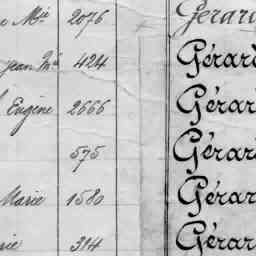 Mie 2076 Gerard
Jean Mie 424 Gérard
Eugène 2666 Gérard
575 Gérard
Marie 1580 Gérard
314 Gérard